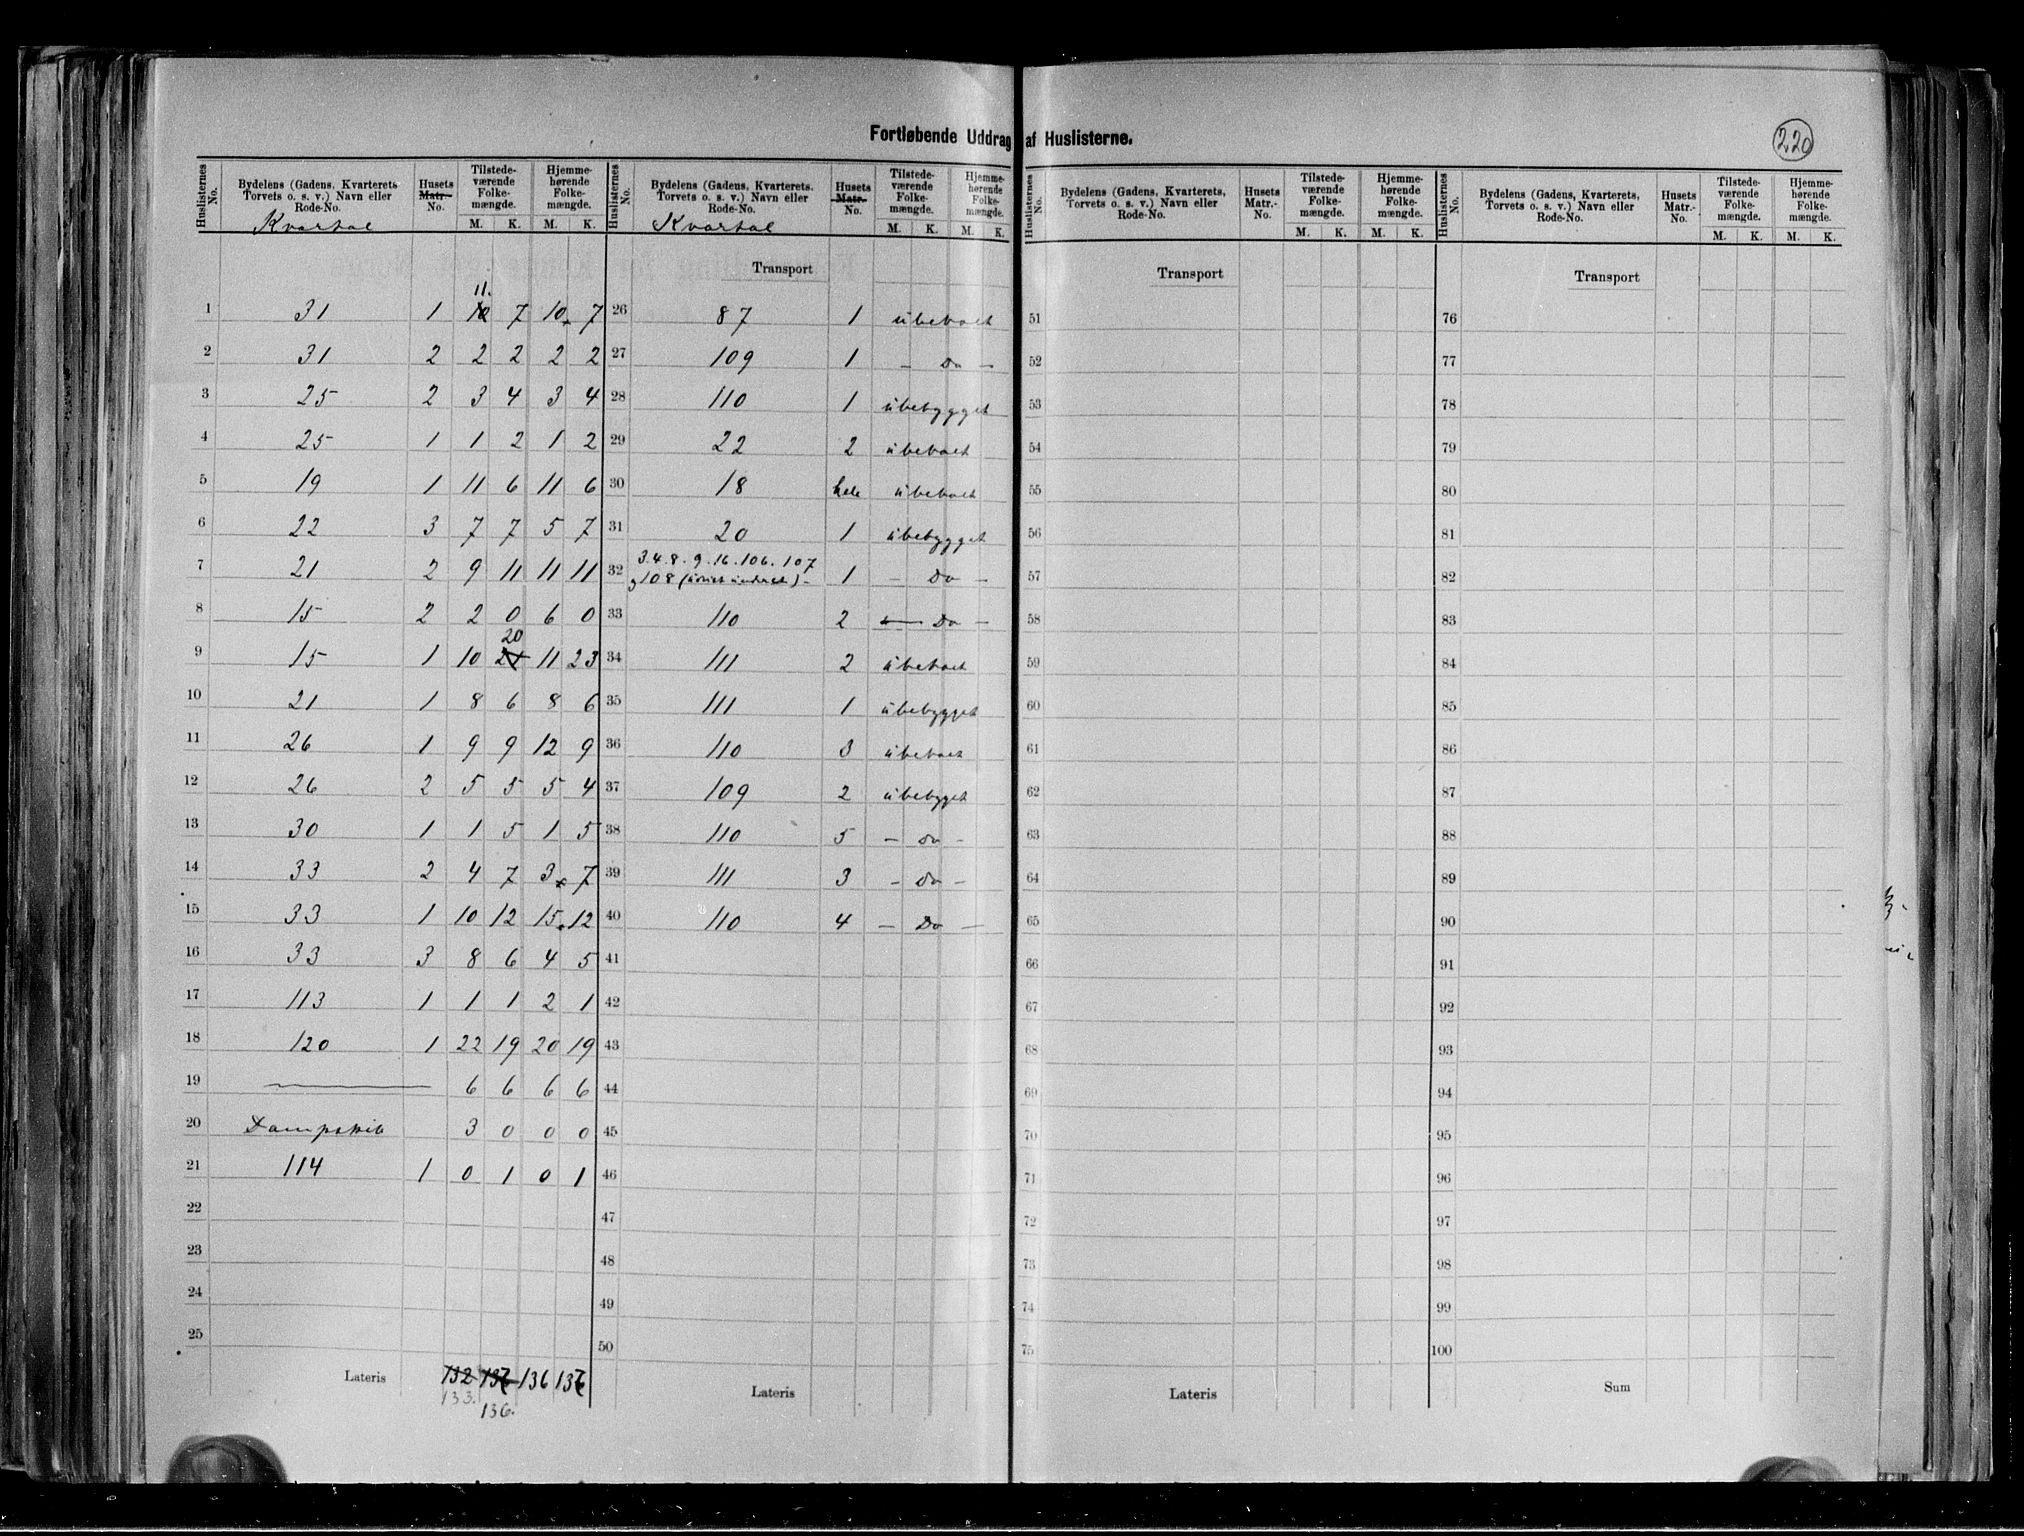 Fortløbende Uddrag af Huslisterne.
220
Huslisternes No. | Bydelens (Gadens, Kvarterets Torvets o. s. v.) Navn eller Rode-No. | Husets Matr.- No. | Tilstede-værende Folke-mængde. | Hjemme-hørende Folke-mængde.
Kvartal | M. K. M. K.
1 31 1 10 11. 7 10 7
2 31 2 2 2 2 2
3 25 2 3 4 3 4
4 25 1 1 2 1 2
5 19 1 11 6 11 6
6 22 3 7 7 5 7
7 21 2 9 11 11 11
8 15 2 2 0 6 0
9 15 1 10 21 20 11 23
10 21 1 8 6 8 6
11 26 1 9 9 12 9
12 26 2 5 5 5 4
13 30 1 1 5 1 5
14 33 2 4 7 3 7
15 33 1 10 12 15 12
16 33 3 8 6 4 5
17 113 1 1 1 2 1
18 120 1 22 19 20 19
19 — 6 6 6 6
20 Dampskib 3 0 0 0
21 114 1 0 1 0 1
22
23
24
25
Lateris 132 136 136 136
133. 136.
Huslisternes No. | Bydelens (Gadens, Kvarterets. Torvets o. s. v.) Navn eller Rode-No. | Husets Matr.- No. | Tilstede-værende Folke-mængde. | Hjemme-hørende Folke-mængde.
Kvartal | M. K. M. K.
Transport
26 87 1 ubeboet
27 109 1 – Do –
28 110 1 ubebygget
29 22 2 ubeboet
30 18 hele ubeboet
31 20 1 ubebygget
32 3.4.8.9.16.106.107
108 1 – Do –
33 110 2 — Do –
34 111 2 ubeboet
35 111 1 ubebygget
36 110 3 ubeboet
37 109 2 ubebygget
38 110 5 – Do –
39 111 3 – Do –
40 110 4 – Do –
41
42
43
44
45
46
47
48
49
50
Lateris
Huslisternes No. | Bydelens (Gadens, Kvarterets, Torvets o. s. v.) Navn eller Rode-No. | Husets Matr.- No. | Tilstede-værende Folke-mængde. | Hjemme-hørende Folke-mængde.
M. K. M. K.
Transport
51
52
53
54
55
56
57
58
59
60
61
62
63
64
65
66
67
68
69
70
71
72
73
74
75
Lateris
Huslisternes No. | Bydelens (Gadens, Kvarterets, Torvets o. s. v.) Navn eller Rode-No. | Husets Matr.- No. | Tilstede-værende Folke-mængde. | Hjemme-hørende Folke-mængde.
M. K. M. K.
Transport
76
77
78
79
80
81
82
83
84
85
86
87
88
89
90
91
92
93
94
95
96
97
98
99
100
Sum